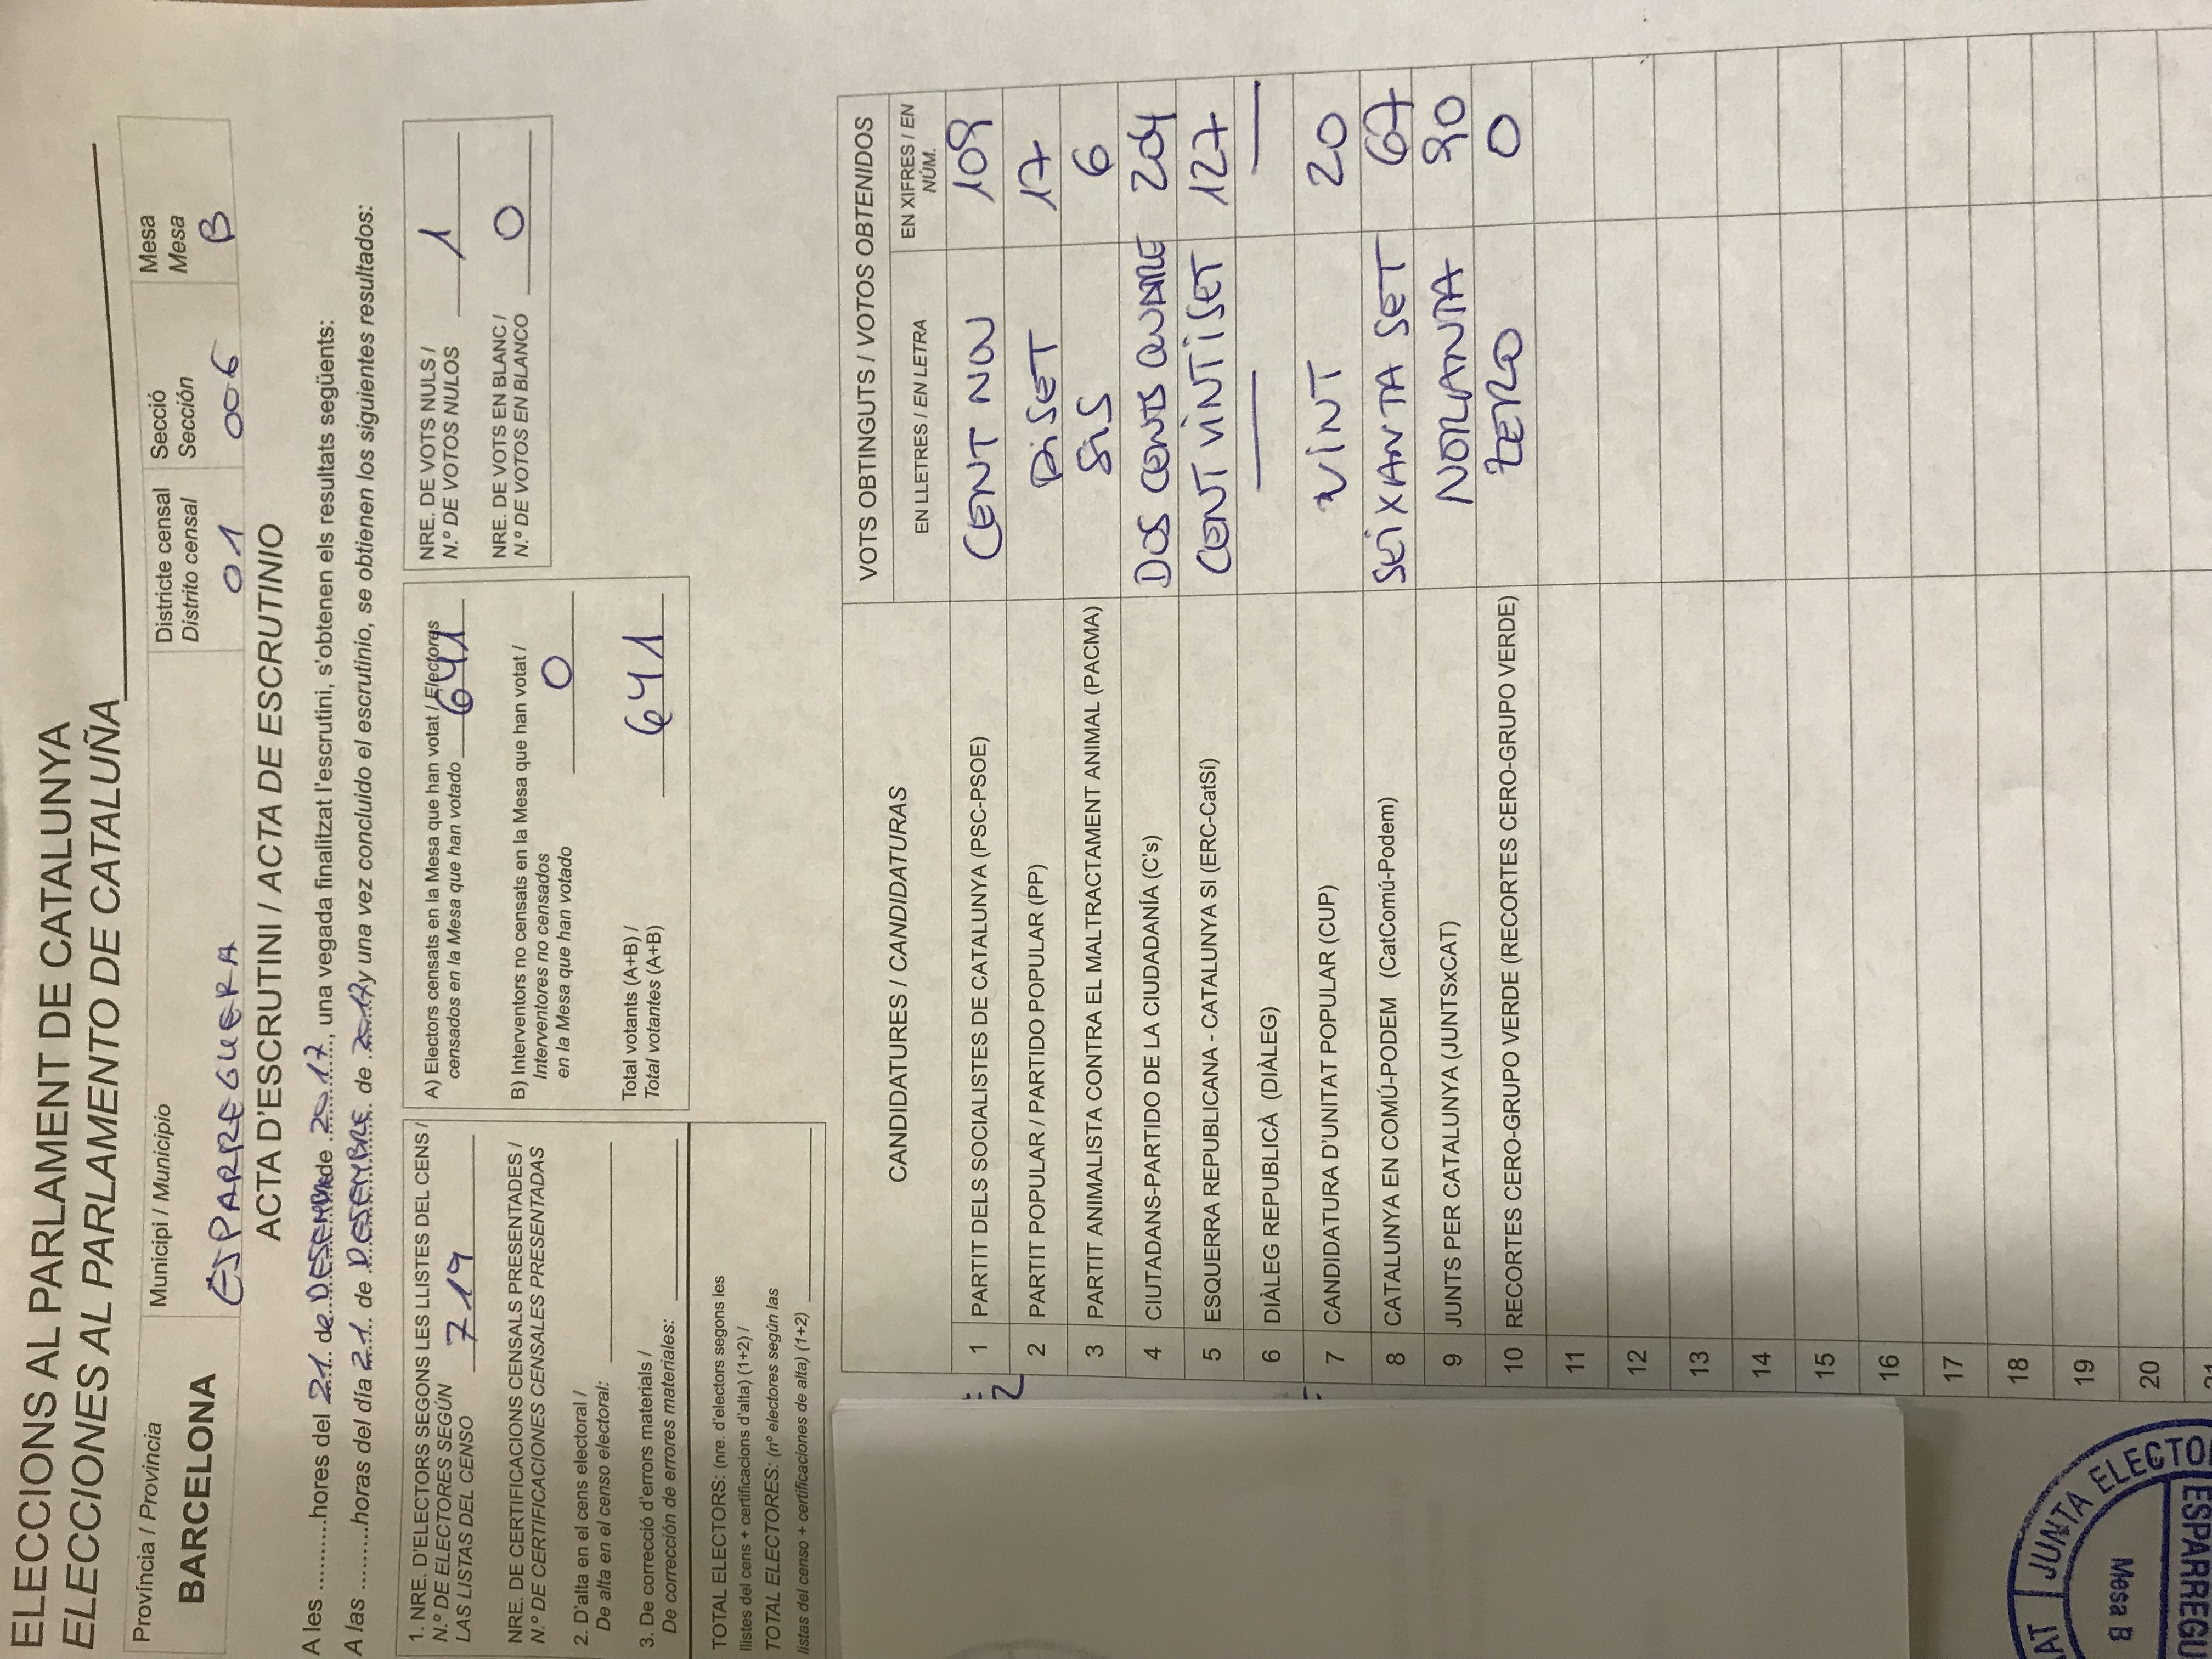 ELECCIONS AL PARLAMENT DE CATALUNYA
ELECCIONES AL PARLAMENTO DE CATALUÑA
Província / Provincia
BARCELONA
Municipi / Municipio
ESPARREGUERA
Districte censal
Distrito censal
01
Secció
Sección
006
Mesa
Mesa
B
ACTA D'ESCRUTINI / ACTA DE ESCRUTINIO
A les ..........hores del 21 de DESEMBRE de 2017, una vegada finalitzat l'escrutini, s'obtenen els resultats següents:
A las .........horas del día 21 de DESEMBRE de 2017 y una vez concluido el escrutinio, se obtienen los siguientes resultados:
1. NRE. D'ELECTORS SEGONS LES LLISTES DEL CENS /
N.º DE ELECTORES SEGÚN
LAS LISTAS DEL CENSO 719
NRE. DE CERTIFICACIONS CENSALS PRESENTADES /
N.º DE CERTIFICACIONES CENSALES PRESENTADAS
2. D'alta en el cens electoral /
De alta en el censo electoral:
3. De correcció d'errors materials /
De corrección de errores materiales:
TOTAL ELECTORS: (nre. d'electors segons les
llistes del cens + certificacions d'alta) (1+2) /
TOTAL ELECTORES: (nº electores según las
listas del censo + certificaciones de alta) (1+2)
A) Electors censats en la Mesa que han votat / Electores
censados en la Mesa que han votado 641
B) Interventors no censats en la Mesa que han votat /
Interventores no censados
en la Mesa que han votado 0
Total votants (A+B) /
Total votantes (A+B) 641
NRE. DE VOTS NULS /
N.º DE VOTOS NULOS 1
NRE. DE VOTS EN BLANC /
N.º DE VOTOS EN BLANCO 0
CANDIDATURES / CANDIDATURAS
VOTS OBTINGUTS / VOTOS OBTENIDOS
EN LLETRES / EN LETRA
EN XIFRES / EN
NÚM.
1 PARTIT DELS SOCIALISTES DE CATALUNYA (PSC-PSOE) CENT NOU 109
2 PARTIT POPULAR / PARTIDO POPULAR (PP) DiSET 17
3 PARTIT ANIMALISTA CONTRA EL MALTRACTAMENT ANIMAL (PACMA) SiS 6
4 CIUTADANS-PARTIDO DE LA CIUDADANÍA (C's) DOS CENTS QUATRE 204
5 ESQUERRA REPUBLICANA - CATALUNYA SI (ERC-CatSí) CENT ViNT i SET 127
6 DIÀLEG REPUBLICÀ (DIÀLEG) — —
7 CANDIDATURA D'UNITAT POPULAR (CUP) ViNT 20
8 CATALUNYA EN COMÚ-PODEM (CatComú-Podem) SEiXANTA SET 67
9 JUNTS PER CATALUNYA (JUNTSxCAT) NORANTA 90
10 RECORTES CERO-GRUPO VERDE (RECORTES CERO-GRUPO VERDE) ZERO 0
11
12
13
14
15
16
17
18
19
20
21
JUNTA ELECTO
Mesa B
ESPARREGU